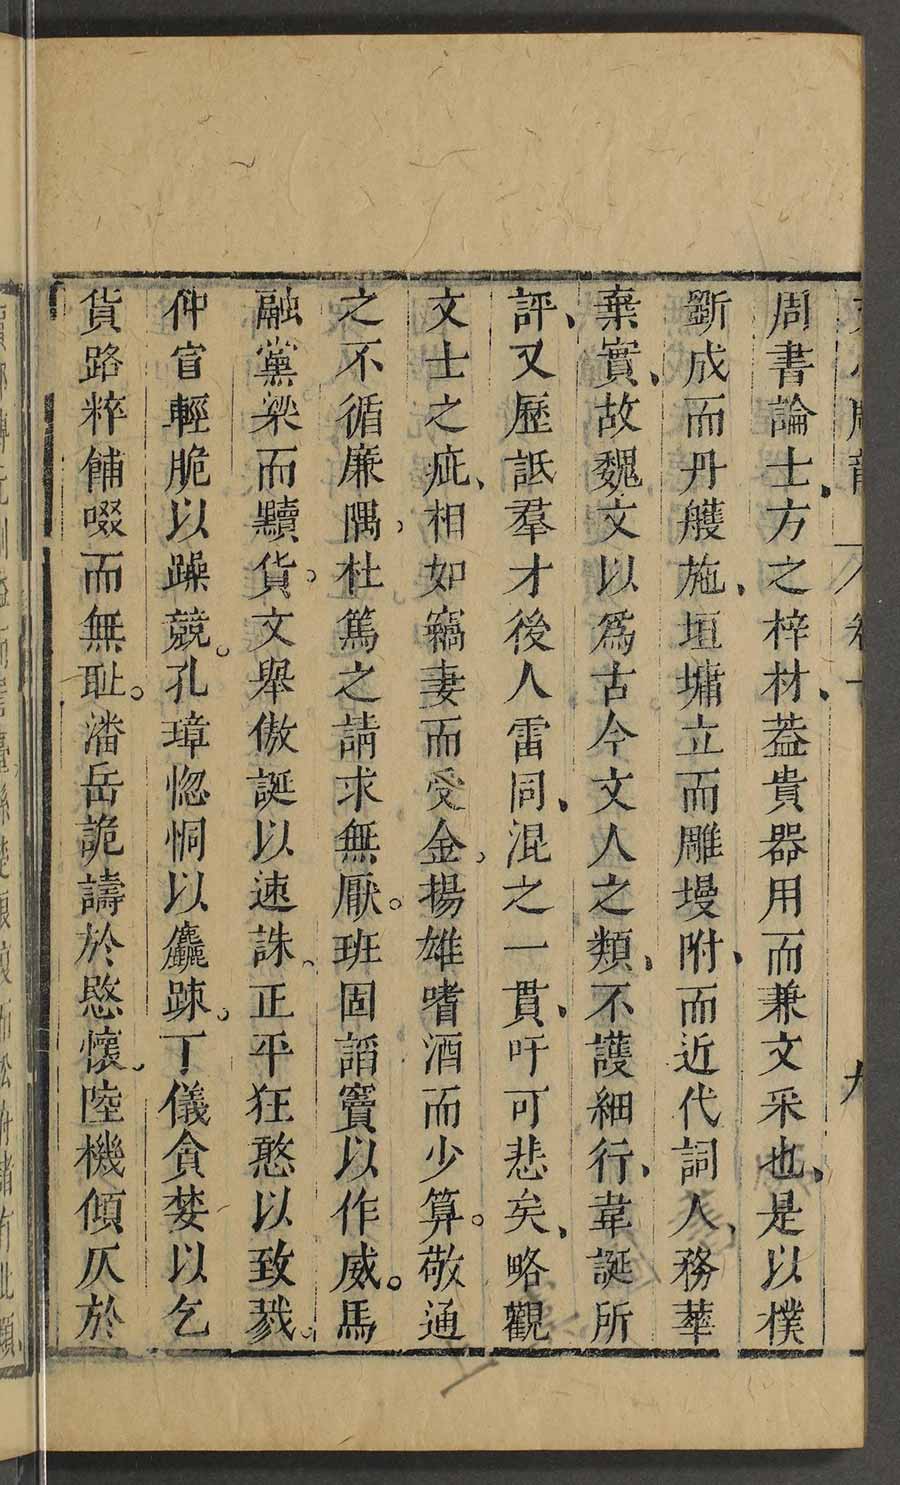 周書論士、方之梓材、葢貴器用而兼文采也、是以樸
斵成而丹雘施、垣墉立而雕墁附、而近代詞人、務華
棄實、故魏文以爲古今文人之類、不護細行、韋誕所
評、又歷詆羣才後人雷同、混之一貫、吁可悲矣、略觀
文士之疵、相如竊妻而受金。揚雄嗜酒而少算。敬通
之不循廉隅。杜篤之請求無厭。班固諂竇以作威。馬
融黨梁而黷貨。文舉傲誕以速誅。正平狂憨以致戮。
仲宣輕脆以躁競。孔璋惚恫以麤踈。丁儀貪婪以乞
貨路粹餔啜而無耻。潘岳詭譸於愍懷。陸機傾仄於